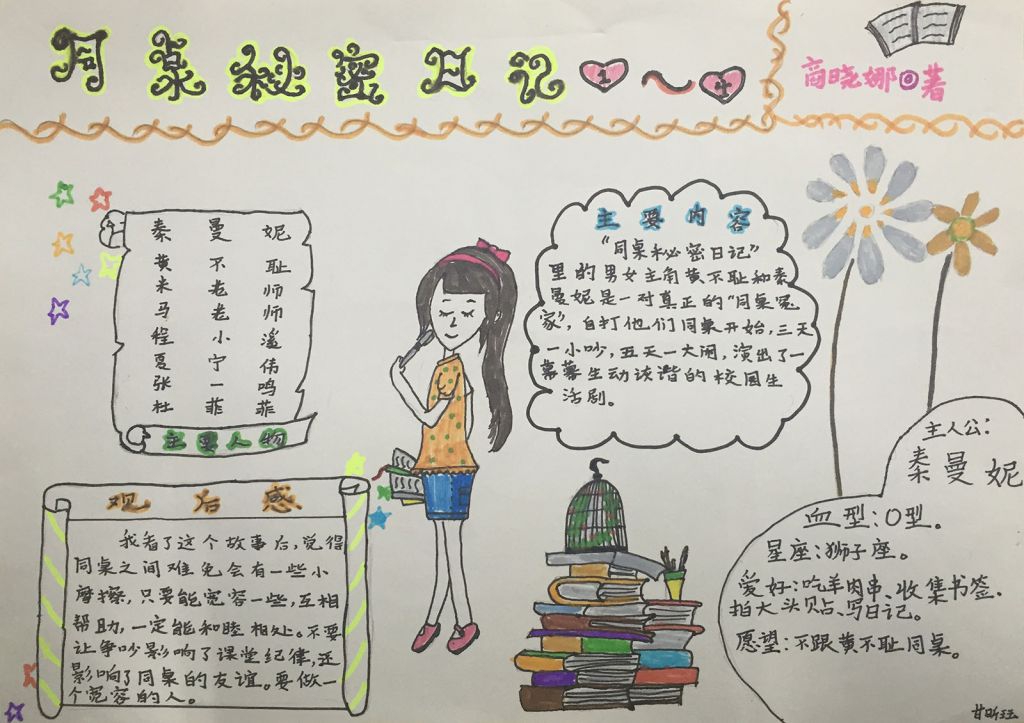 同桌秘密日记 1～4
商晓娜◎著
秦曼妮
黄不耻
米老师
马老师
程小遥
夏宁伟
张一鸣
杜菲菲
主要人物
主要内容
“同桌秘密日记”
里的男女主角黄不耻和秦
曼妮是一对真正的“同桌冤
家”，自打他们同桌开始，三天
一小吵，五天一大闹，演出了一
幕幕生动诙谐的校园生
活剧。
观后感
我看了这个故事后，觉得
同桌之间难免会有一些小
摩擦，只要能宽容一些，互相
帮助，一定能和睦相处。不要
让争吵影响了课堂纪律，还
影响了同桌的友谊。要做一
个宽容的人。
主人公：
秦曼妮
血型：O型。
星座：狮子座。
爱好：吃羊肉串、收集书签．
拍大头贴、写日记。
愿望：不跟黄不耻同桌。